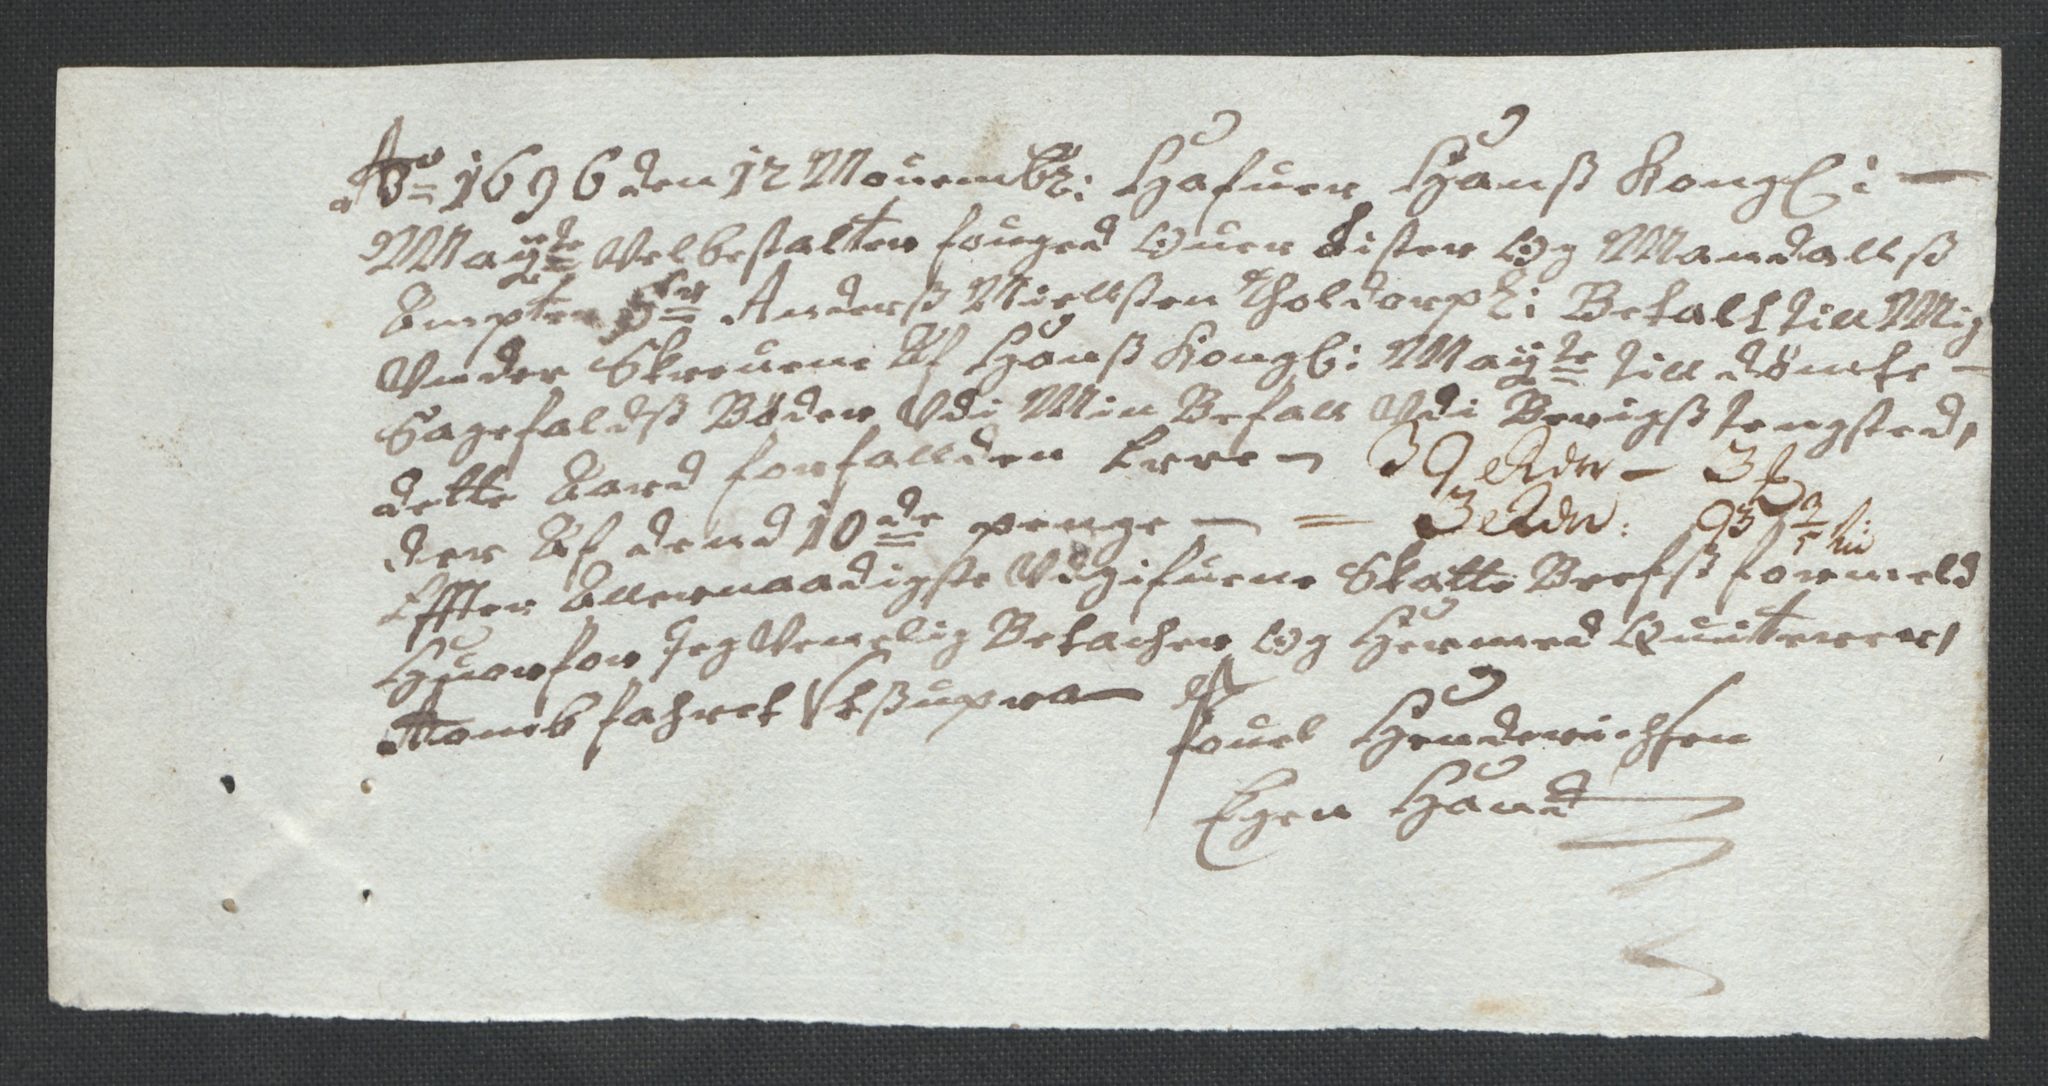 Ao 1696 den 12 Nouembr: Hafuer Hans Kongl:
Mayts Velbestalter fouged Ouer Lister Og Mandalls
Ampter Sr Anderss Niellsen Tholdorph: Betalt till Mig
Vnder Skreuene Af Hans Kongl: Mayts till dömte
Sagefaldss Böder Vdi Min Befall Vdi
dette Aard forfallden Erre 39 Rdr 3
der Af dend 10de penge 3 Rdr: 93
Effter Allernaadigste Vdgifuene Skatte Brefss formeld
Huorfor Jeg Venelig Betacher Og Hermed Quiterer,
Vt Supra
Pouel Henderichsen
Egen Hand